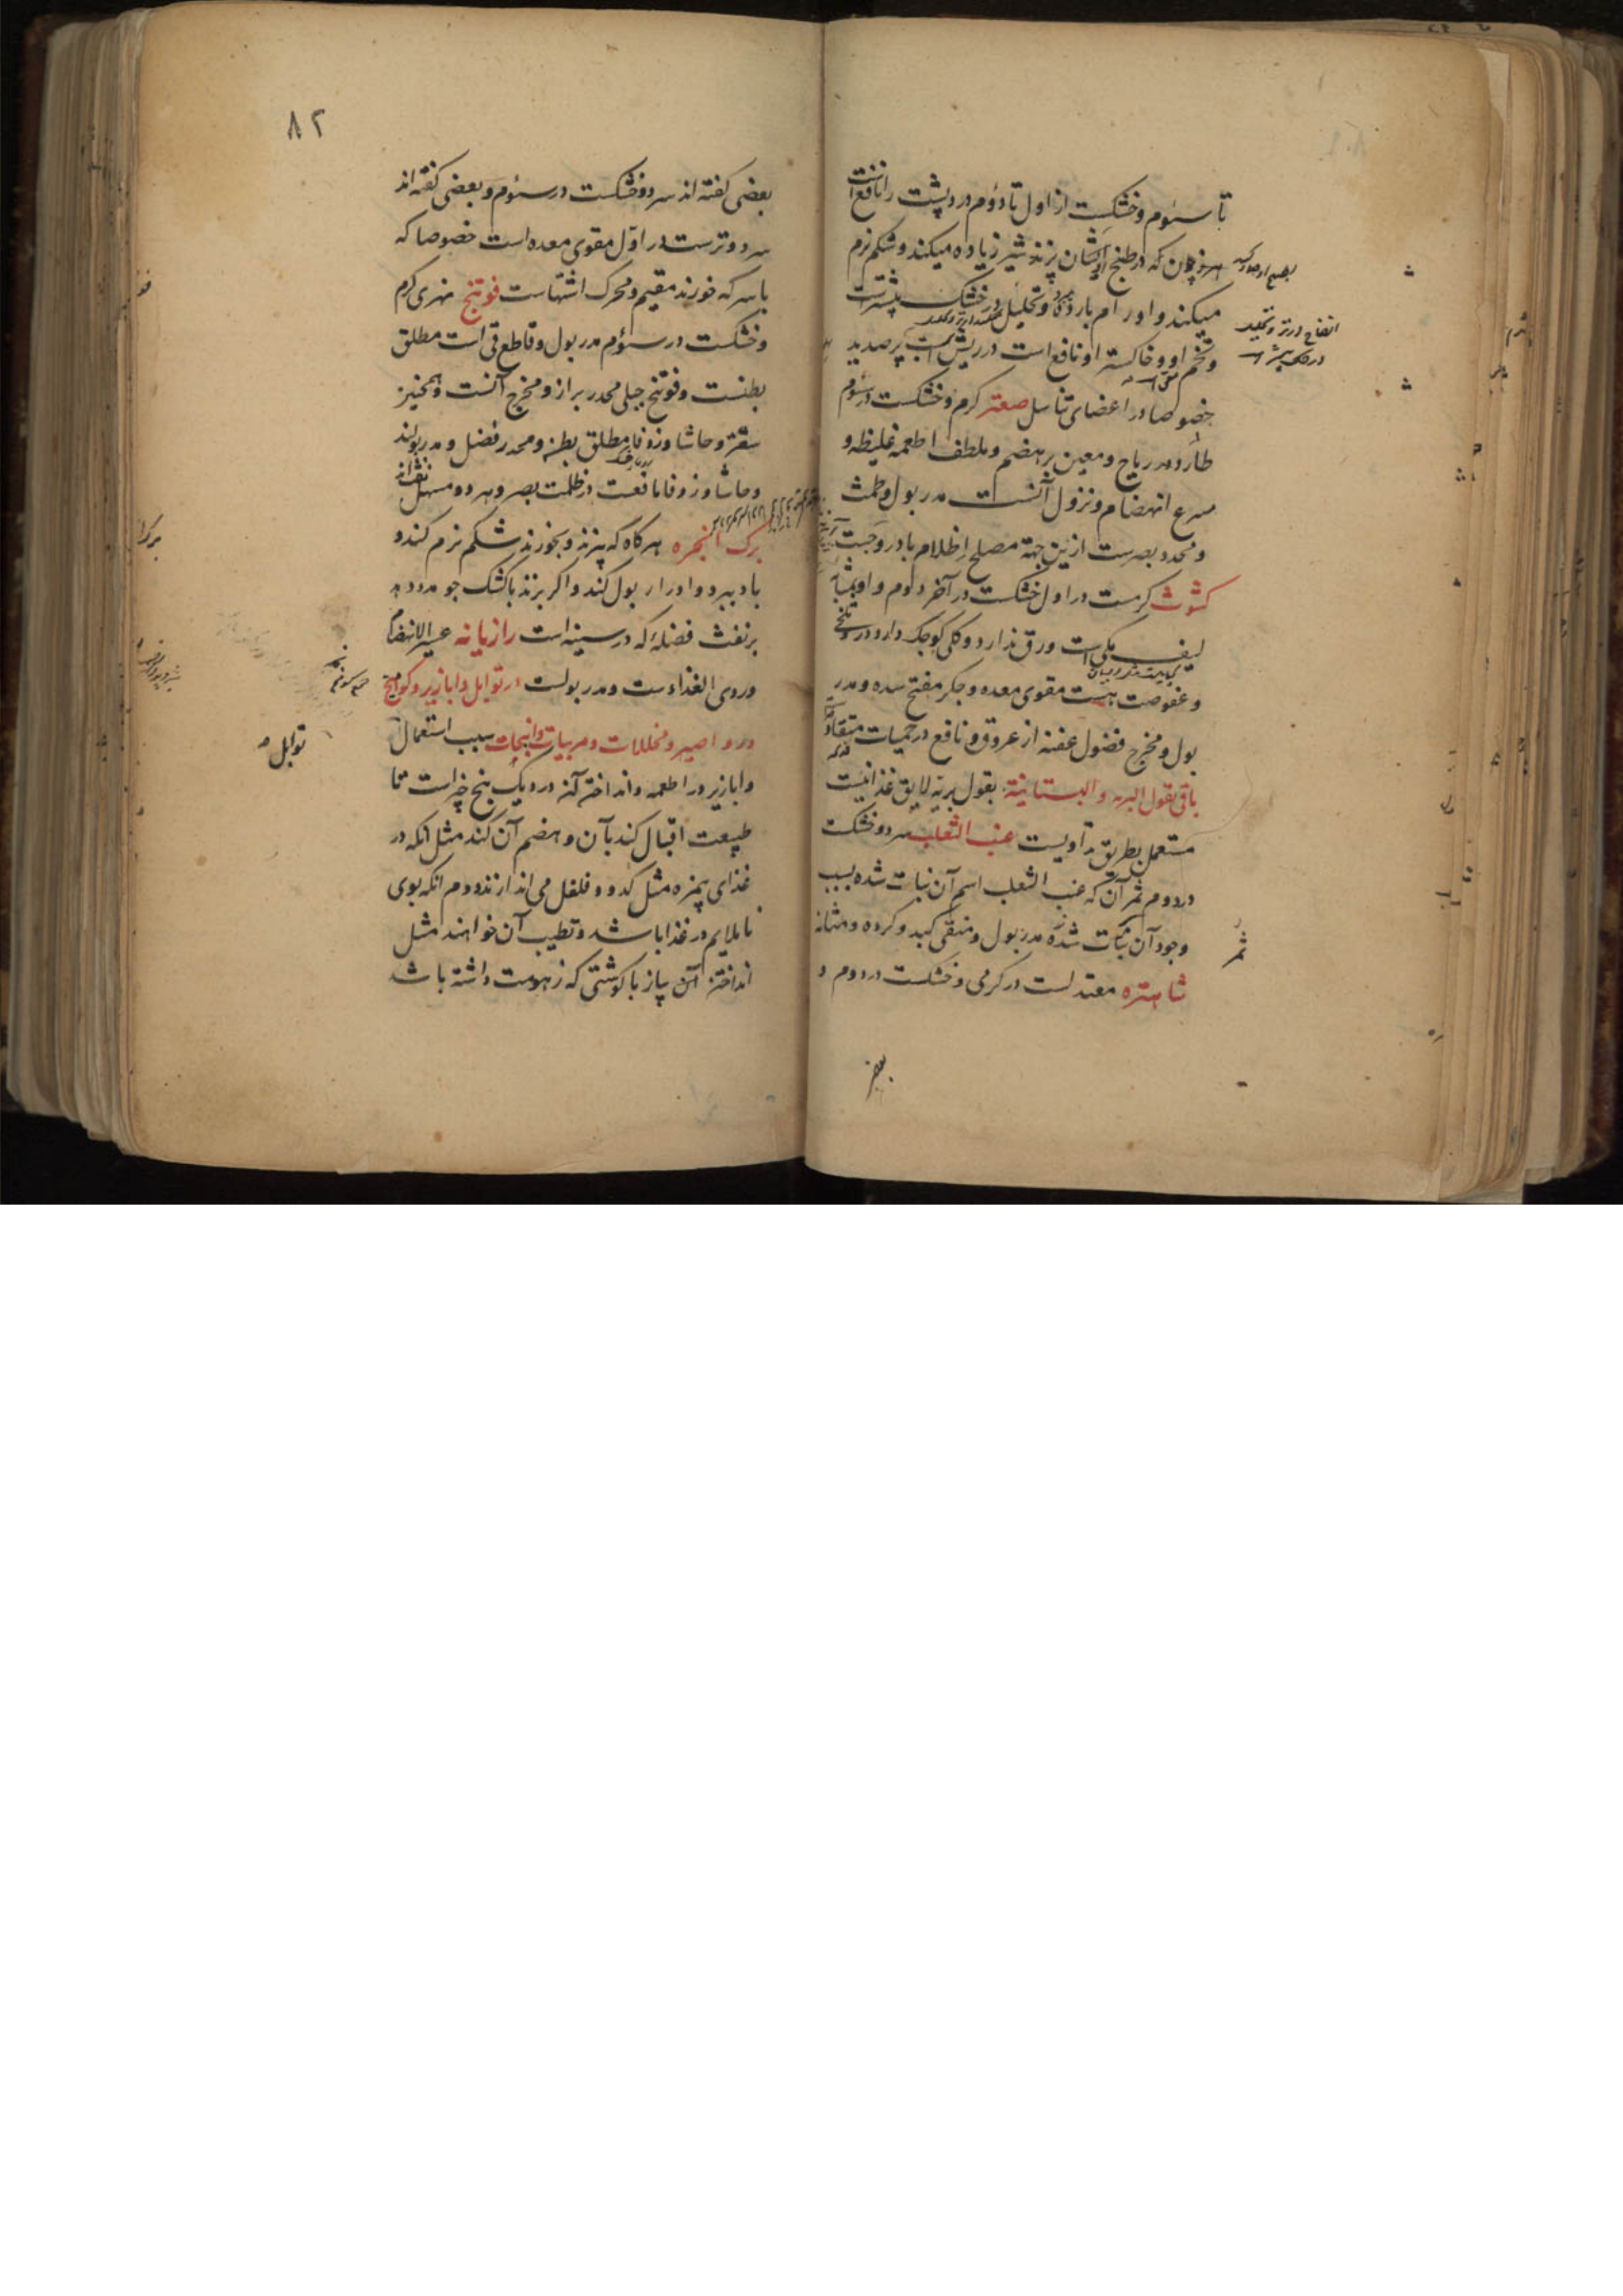 تا سئوم و خشکست از اول تا دوم درد پشت را نافع است
هر خوان که در طبخ ایشان پزند شیر زیاده میکند و شکم نرم
میکند و اورام بارده و تحلیل در خشک بیشترست
و تخم او و خاکستر او نافع است در ریش پر صدید
خصوصا در اعضای تناسل صعتر گرم و خشکست در سئوم
طارد و مدر ریاح و معین بر هضم و ملطف اطعمه غلیظه و
سرع انهضام و نزول آنست مدر بول و طمث
و محدد بصرست ازین جهة مصلح اظلام بادروجست
کشوث گرمست در اول خشکست در آخر دوم و او بمثابه
لیف مکی است ورق ندارد و گلی کوچک دارد درو تلخی
و عفوصت هست مقوی معده و جگر مفتح سده و مدر
بول و مخرج فضول عفنه از عروق و نافع در حمیات متقادمه
باقی بقول البریه والبستانیة بقول بریه لایق غذا نیست
مستعمل بطریق تداویست عنب الثعلب سرد و خشکست
در دوم ثمر آن که عنب الثعلب اسم آن نبات شده بسبب
وجود آن نبات شده مدر بول و منقی کبد و کرده و مثانه
شاهتره معتدلست در گرمی و خشکست در دوم و
بعضی
انفاج در تر و تحلیل
در خشک بیشتر است
ثمر
۸۲
بعضی گفته اند سرد و خشکست در سئوم و بعضی گفته اند
سرد و ترست در اول مقوی معده است خصوصا که
با سرکه خورند مقیم و محرک اشتهاست فوتنج نهری گرم
و خشکست در سئوم مدر بول و قاطع قی است مطلق
بطنست و فوتنج جبلی محدر براز و مخرج آنست و همچنین
سعتر و حاشا و زوفا مطلق بطن و محدر فضل و مدر بولند
و حاشا و زوفا نافعست در ظلمت بصر و هر دو مسهل نفث اند
برک انجره هرگاه که پزند و بخورند شکم نرم کند و
باد ببرد و ادرار بول کند و اگر پزند با کشک جو مدد دهد
بر نفث فضله که در سینه است رازیانه عسر الانهضام
وردی الغذاءست و مدر بولست در توابل و ابازیر و کوامیخ
و رواصیر و مخللات و مربیات و انبجات سبب استعمال
و ابازیر در اطعمه و انداختن آنه در دیک پنج چیز است تا
طبیعت اقبال کند بآن و هضم آن کند مثل آنکه در
غذای بیمزه مثل کدو و فلفل می اندازند دوم آنکه بوی
ناملایم در غذا باشد و تطیب آن خواهند مثل
انداختن آن پیاز با گوشتی که زهومت داشته باشد
توابل